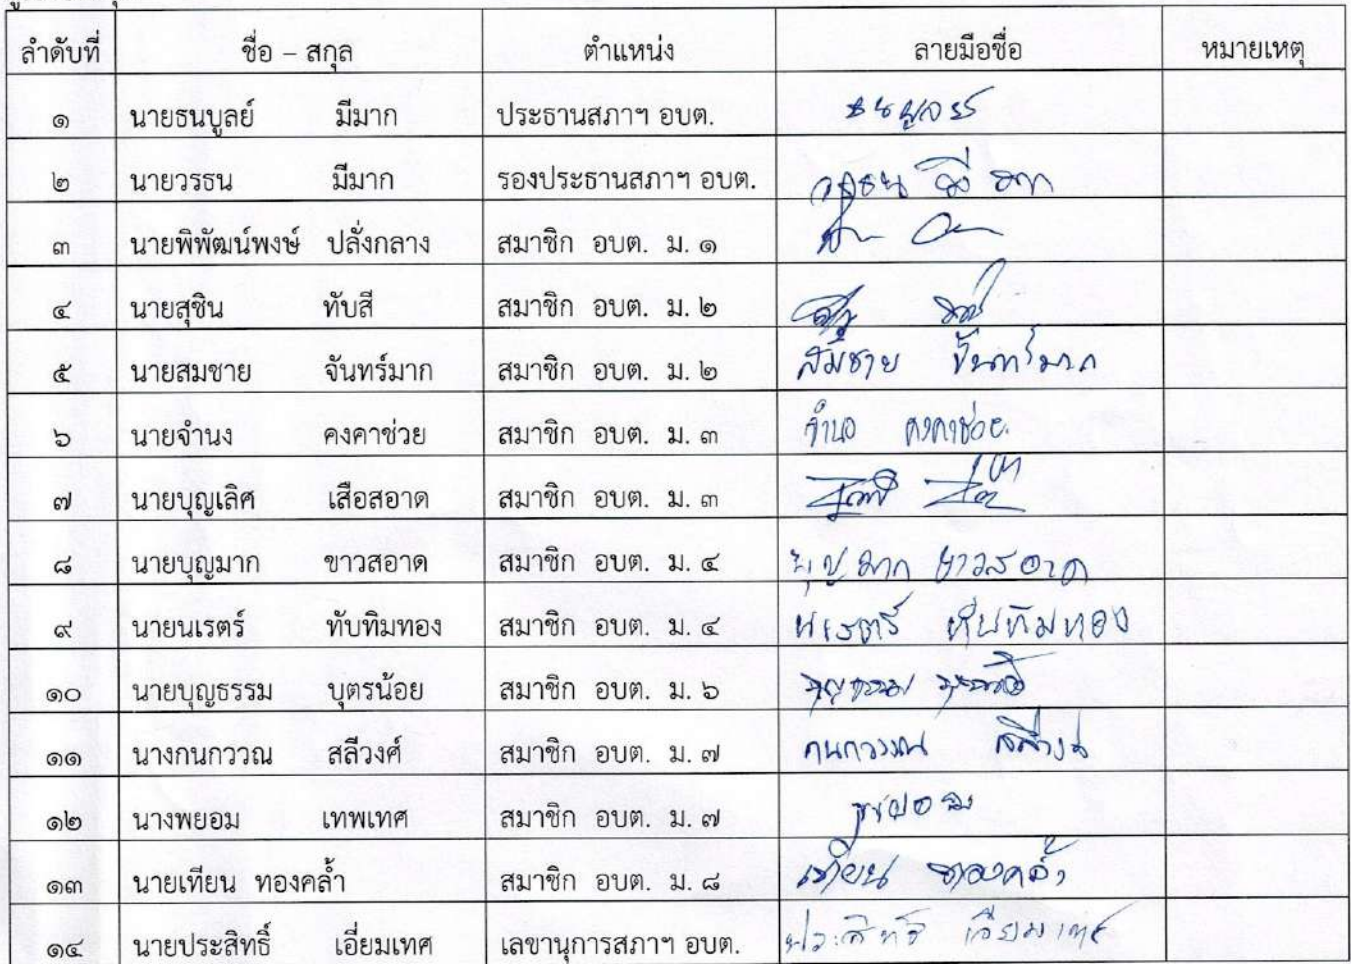 ลำดับที่ ชื่อ – สกุล ตำแหน่ง ลายมือชื่อ หมายเหตุ
๑ นายธนบูลย์ มีมาก ประธานสภาฯ อบต. ธนบูลย์
๒ นายวรธน มีมาก รองประธานสภาฯ อบต. วรธน มีมาก
๓ นายพิพัฒน์พงษ์ ปลั่งกลาง สมาชิก อบต. ม. ๑
๔ นายสุชิน ทับสี สมาชิก อบต. ม. ๒
๕ นายสมชาย จันทร์มาก สมาชิก อบต. ม. ๒ สมชาย จันทร์มาก
๖ นายจำนง คงคาช่วย สมาชิก อบต. ม. ๓ จำนง คงคาช่วย
๗ นายบุญเลิศ เสือสอาด สมาชิก อบต. ม. ๓
๘ นายบุญมาก ขาวสอาด สมาชิก อบต. ม. ๔ บุญมาก ขาวสอาด
๙ นายนเรตร์ ทับทิมทอง สมาชิก อบต. ม. ๔ นเรตร์ ทับทิมทอง
๑๐ นายบุญธรรม บุตรน้อย สมาชิก อบต. ม. ๖ บุญธรรม
๑๑ นางกนกววณ สลีวงศ์ สมาชิก อบต. ม. ๗ กนกวรรณ
๑๒ นางพยอม เทพเทศ สมาชิก อบต. ม. ๗ พยอม
๑๓ นายเทียน ทองคล้ำ สมาชิก อบต. ม. ๘ เทียน ทองคล้ำ
๑๔ นายประสิทธิ์ เอี่ยมเทศ เลขานุการสภาฯ อบต. ประสิทธิ์ เอี่ยมเทศ